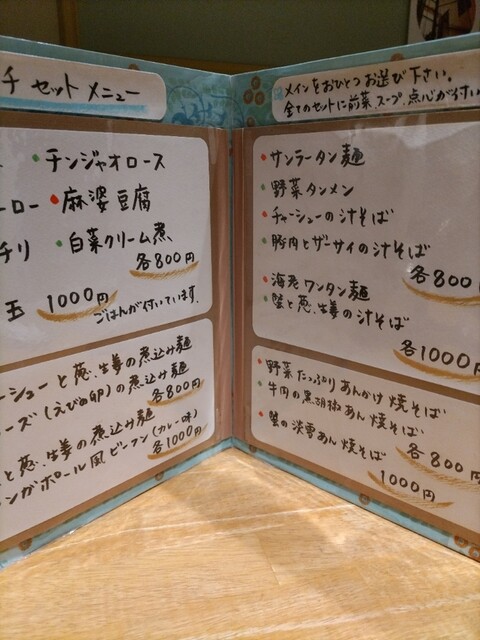 チ セット メニュー
チンジャオロース
ーロー 麻婆豆腐
チリ 白菜クリーム煮
各800円
玉 1000円
ごはんが付いています。
ーシューと葱、生姜の煮込み麺
ーズ(えびの卵)の煮込み麺
各800円
と葱、生姜の煮込み麺
ンガポール風ビーフン(カレー味)
各1000円
メインをおひとつお選び下さい。
全てのセットに前菜、スープ、点心が付い
サンラータン麺
野菜タンメン
チャーシューの汁そば
豚肉とザーサイの汁そば
各800
海老ワンタン麺
蟹と葱、生姜の汁そば
各1000円
野菜たっぷりあんかけ焼そば
牛肉の黒胡椒あん焼そば
各800円
蟹の淡雪あん焼そば
1000円